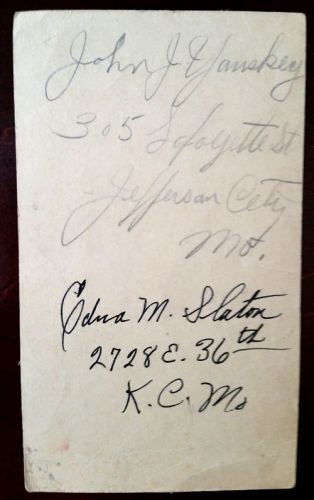 John J Yanskey
305 Lafayette St
Jefferson City
Mo.
Edna M. Slaton
2728 E. 36th
K. C. Mo